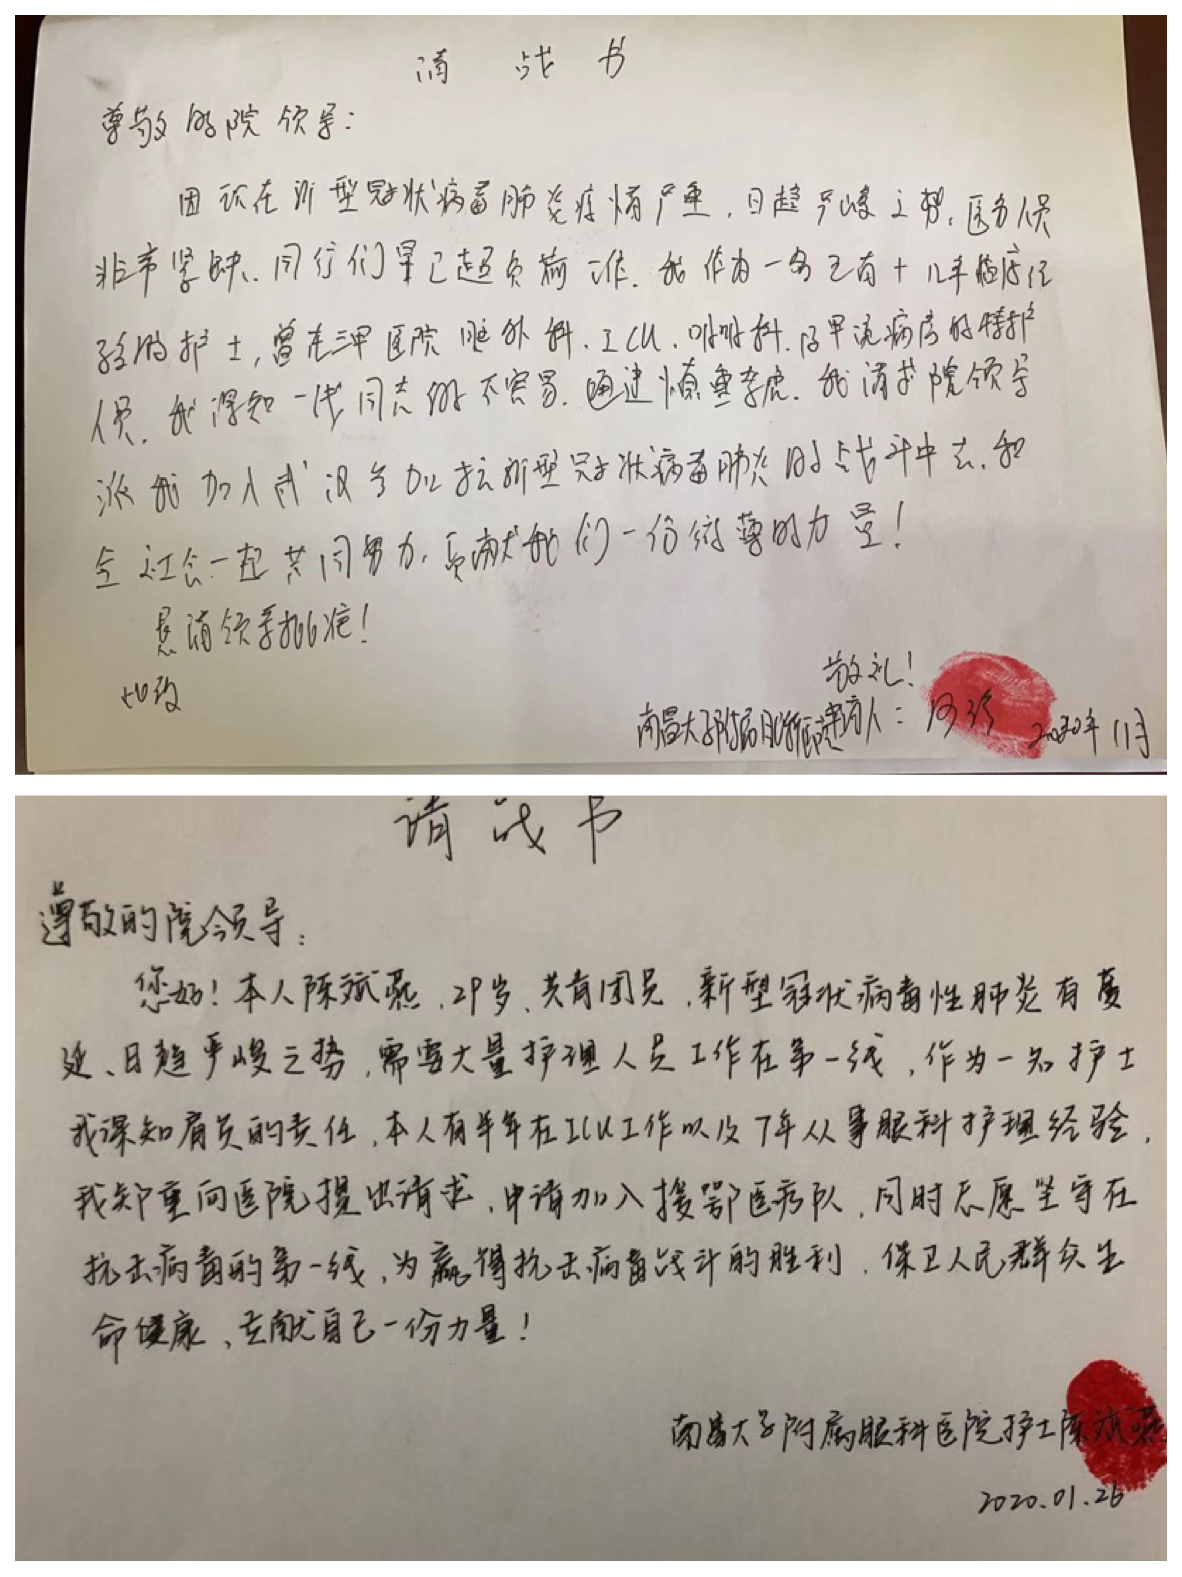 请 战 书
尊敬的院领导：
因现在新型冠状病毒肺炎疫情严重，日趋严峻之势，医务人员
非常紧缺、同行们早已超负荷工作．我作为一名已有十几年临床经
验的护士，曾在三甲医院脑外科．ICU．呼吸科．及甲流病房的特护
人员．我深知一线同志的不容易．通过慎重考虑．我请求院领导
派我加入武汉参加抗新型冠状病毒肺炎的战斗中去．和
全社会一起共同努力．贡献我们一份微薄的力量！
恳请领导批准！
此致
敬礼！
南昌大学附属眼科医院 申请人：
2020年1月
请 战 书
遵敬的院领导：
您好！本人陈斌燕，29岁、共青团员，新型冠状病毒性肺炎有蔓
延、日趋严峻之势，需要大量护理人员工作在第一线，作为一名护士
我深知肩负的责任，本人有半年在ICU工作以及7年从事眼科护理经验，
我郑重向医院提出请求，申请加入援鄂医疗队，同时志愿坚守在
抗击病毒的第一线，为赢得抗击病毒战斗的胜利，保卫人民群众生
命健康、贡献自己一份力量！
南昌大学附属眼科医院护士陈斌燕
2020.01.26